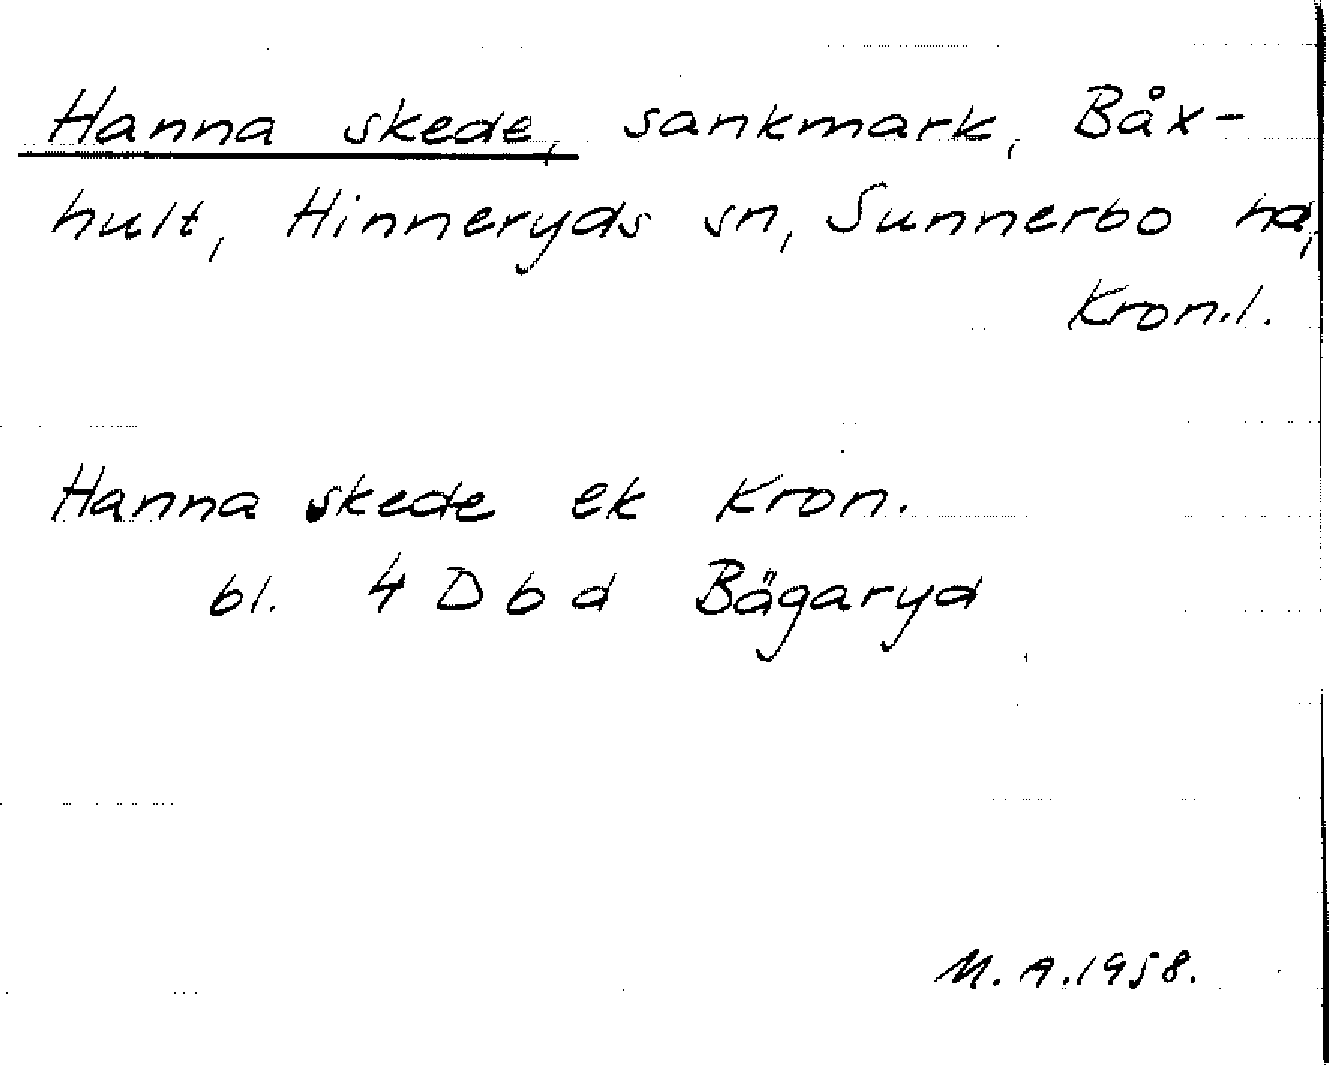 Hanna skede, sankmark, Båx-
hult, Hinneryds sn, Sunnerbo hd,
Kron.l.
Hanna skede ek Kron.
bl. 4 D b d Bägaryd
M. A. 1958.